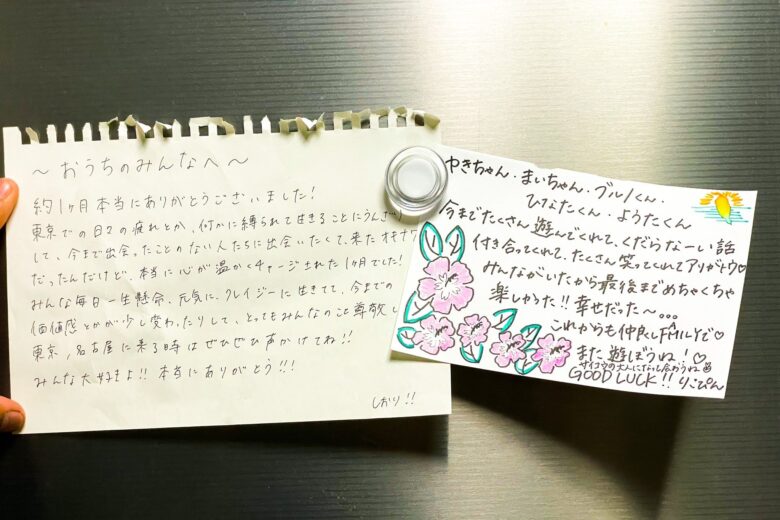 ～おうちのみんなへ～
約1ヶ月本当にありがとうございました！
東京での日々の疲れとか、何かに縛られて生きることにうんざり
して、今まで出会ったことのない人たちに出会いたくて、来たオキナワ
だったんだけど、本当に心が温かくチャージされた1ヶ月でした！
みんな毎日一生懸命、元気に、クレイジーに生きてて、今までの
価値感とかが少し変わったりして、とってもみんなのこと尊敬し
東京、名古屋に来る時はぜひぜひ声かけてね！！
みんな大好きよ！！本当にありがとう！！！
しおり！！
ゆきちゃん・まいちゃん・ブルノくん・
ひなたくん・ようたくん
今までたくさん遊んでくれて、くだらなーい話
付き合ってくれて、たくさん笑ってくれてアリガトウ♡
みんながいたから最後までめちゃくちゃ
楽しかった！！幸せだった〜...
これからも仲良しFAMILYで♡
また遊ぼうね！♡
サイコウの大人になって会おうね
GOOD LUCK!! りこぴん